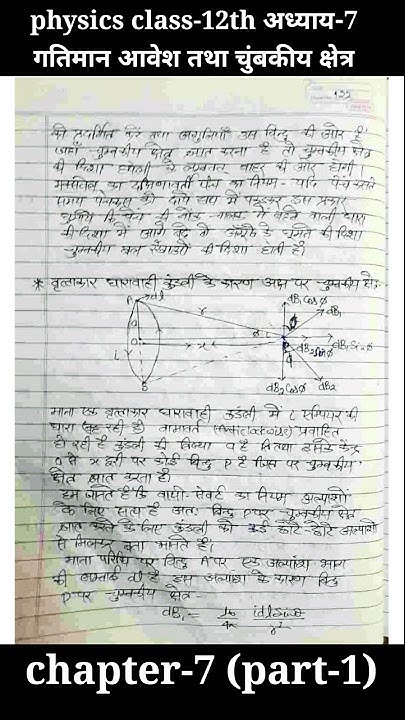 physics class-12th अध्याय-7
गतिमान आवेश तथा चुंबकीय क्षेत्र
122
को प्रदर्शित करे तथा अंगुलियाँ उस बिन्दु की ओर हैं
जहाँ चुम्बकीय क्षेत्र ज्ञात करना है तो चुम्बकीय क्षेत्र
की दिशा हथेली के लम्बवत बाहर की ओर होगी।
मैक्सवेल का दक्षिणावर्ती पेंच का नियम- यदि पेंच कसते
समय पेंचकस को दाये हाथ में पकड़कर इस प्रकार
घुमाये कि पेंच की नोंक चालक में बहने वाली धारा
की दिशा में आगे बढ़े तो अंगूठे के घूमने की दिशा
चुम्बकीय बल रेखाओं की दिशा होती है।
* वृत्ताकार धारावाही कुंडली के कारण अक्ष पर चुम्बकीय क्षेत्र:
A dl dB₁cosφ dB₁
a r
O x P dB₂sinφ dB₁sinφ
B dB₂cosφ dB₂
माना एक वृत्ताकार धारावाही कुंडली में i एम्पियर की
धारा बह रही है। वामावर्त (Anticlockwise) प्रवाहित
हो रही है कुंडली की त्रिज्या a है मि तथा इसके केन्द्र
O से x दूरी पर कोई बिन्दु P है जिस पर चुम्बकीय
क्षेत्र ज्ञात करना है।
हम जानते हैं कि बायो-सेवर्ट का नियम अल्पांशों
के लिए सत्य है अतः बिन्दु P पर चुम्बकीय क्षेत्र
ज्ञात करने के लिए कुंडली को कई छोटे-छोटे अल्पांशो
से मिलकर बना मानते हैं।
माना परिधि पर बिन्दु A पर एक अल्पांश भाग
की लम्बाई dl है इस अल्पांश के कारण बिन्दु
P पर चुम्बकीय क्षेत्र-
dB₁ = μ₀/4π idlsinθ/r²
chapter-7 (part-1)